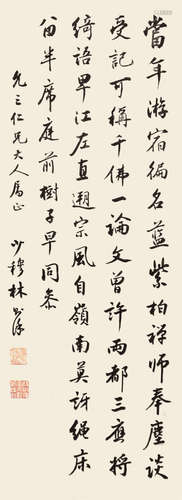 當年游宿徧名藍紫柏禪師奉麈談
受記可稱千佛一論文曾許兩都三應將
綺語畀江左直遡宗風自嶺南莫訝繩床
分半席庭前樹子早同參
允三仁兄大人屬正
少穆林則徐